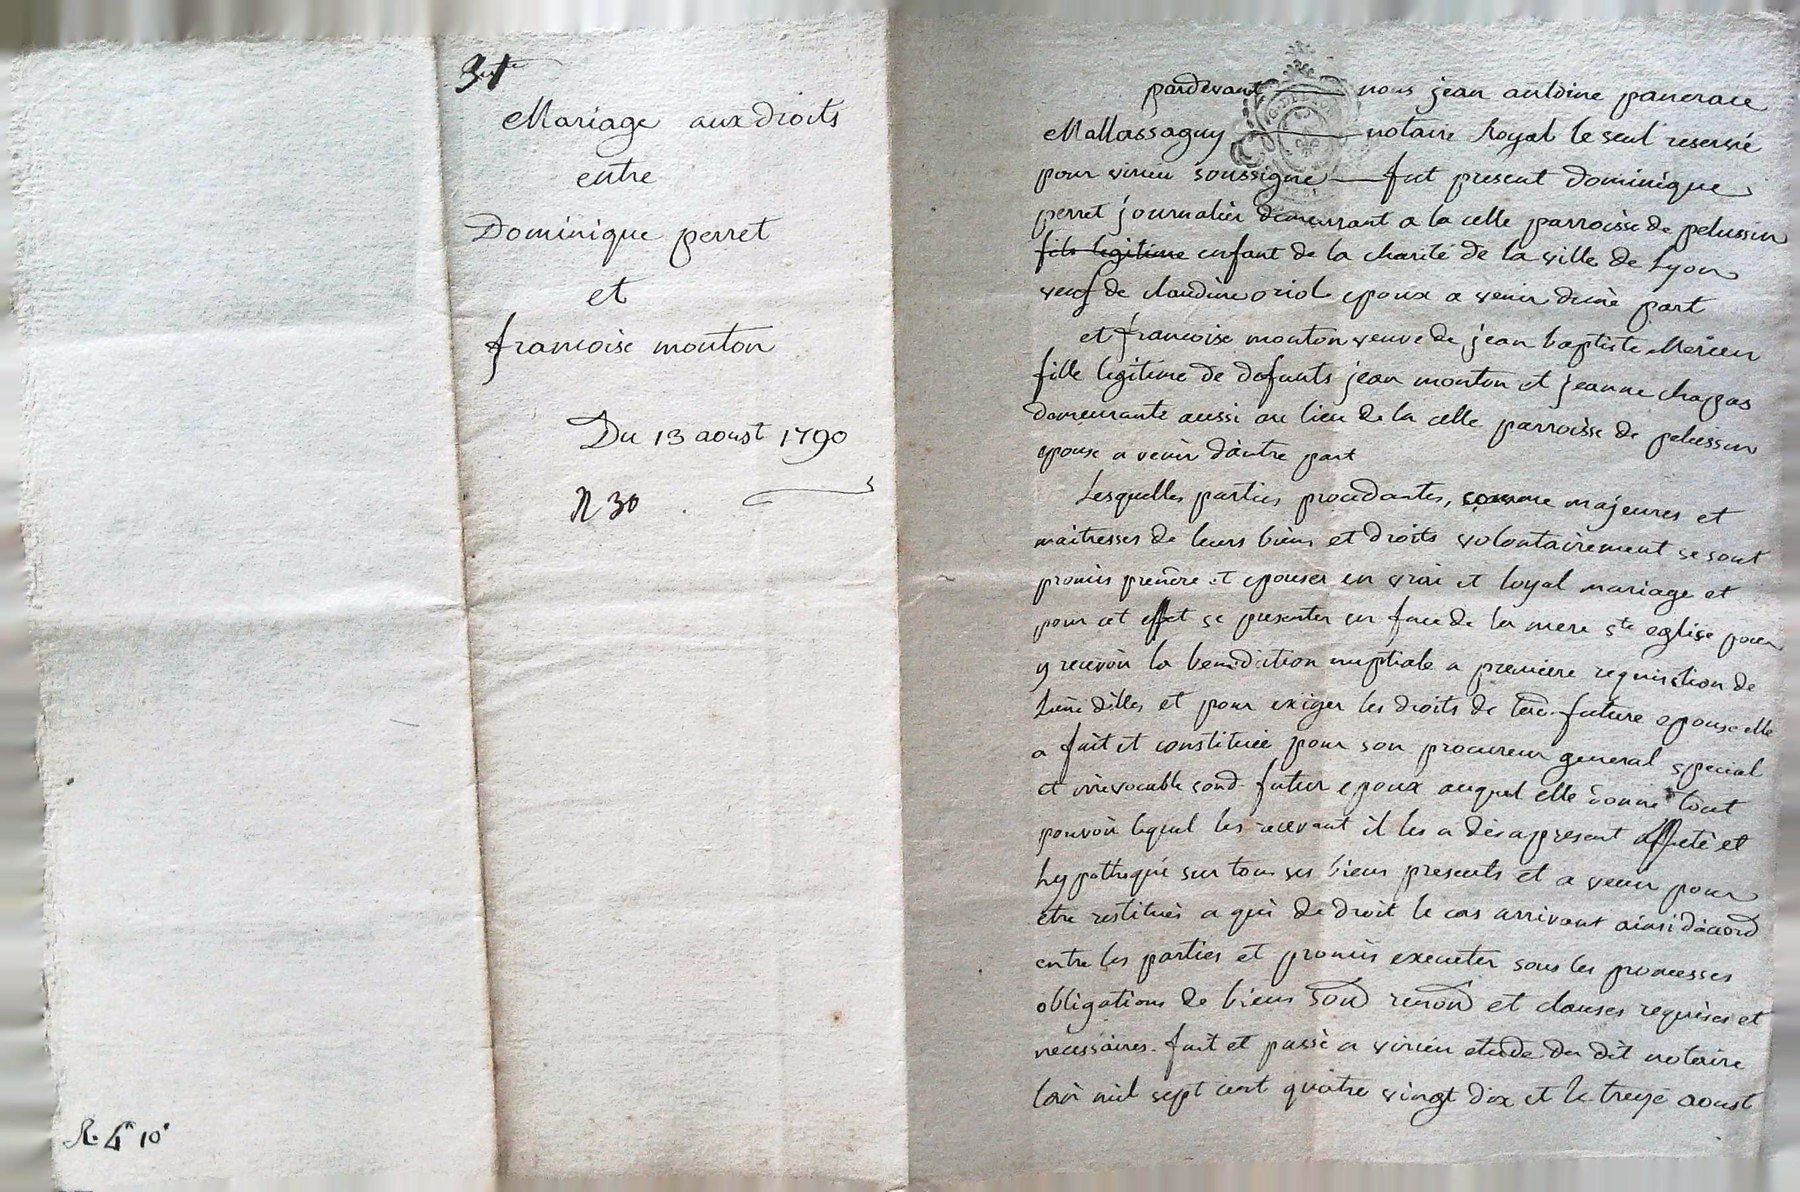 31
Mariage aux droits
entre
Dominique perret
et
francoise mouton
Du 13 aoust 1790
N 30
R. 4# 10s
pardevant nous jean antoine pancrace
Mallassagny notaire Royal le seul reservé
pour virieu soussigné fut present dominique
perret journalier demeurant a la celle parroisse de pelussin
fils legitime enfant de la charité de la ville de Lyon
veuf de claudine oriol epoux a venir dune part
et francoise mouton veuve de jean baptiste Mercier
fille legitime de defunts jean mouton et jeanne chapas
demeurante aussi au lieu de la celle parroisse de pelussin
epouse a venir dautre part
Lesquelles parties procedantes, comme majeures et
maitresses de leurs biens et droits volontairement se sont
promis prendre et epouser en vrai et loyal mariage et
pour cet effet se presenter en face de la mere ste eglise pour
y recevoir la benediction nuptiale a premiere requisition de
Lune delles et pour exiger les droits de lad. future epouse elle
a fait et constitué pour son procureur general special
et irrevocable sond. futur epoux auquel elle donne tout
pouvoir lequel les recevant il les a des apresent affecté et
hypothequé sur tous ses biens presents et a venir pour
etre restitués a qui de droit le cas arrivant ainsi dacord
entre les parties et promis executer sous les promesses
obligations de biens renond et clauses requises et
necessaires. fait et passé a virieu etude du dit notaire
lan mil sept cent quatre vingt dix et le treize aoust